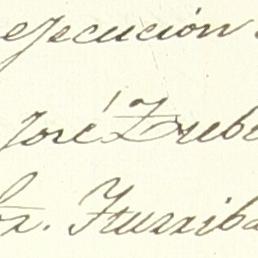 ejecución
José Zube
oz. Iturriba